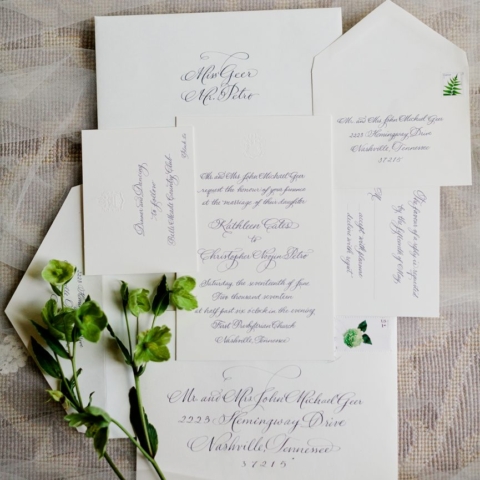 Miss Geer
Mr. Petro
Mr. and Mrs. John Michael Geer
2225 Hemingway Drive
Nashville, Tennessee
37215
Dinner and Dancing
to follow
Belle Meade Country Club
Mr. and Mrs. John Michael Geer
request the honour of your presence
at the marriage of their daughter
Kathleen Cates
to
Christopher Petro
Saturday, the seventeenth of June
Two thousand seventeen
at half past six o'clock in the evening
First Presbyterian Church
Nashville, Tennessee
The favour of a reply is requested
by the fifteenth of May
M
accept with pleasure
decline with regret
Mr. and Mrs. John Michael Geer
2225 Hemingway Drive
Nashville, Tennessee
37215